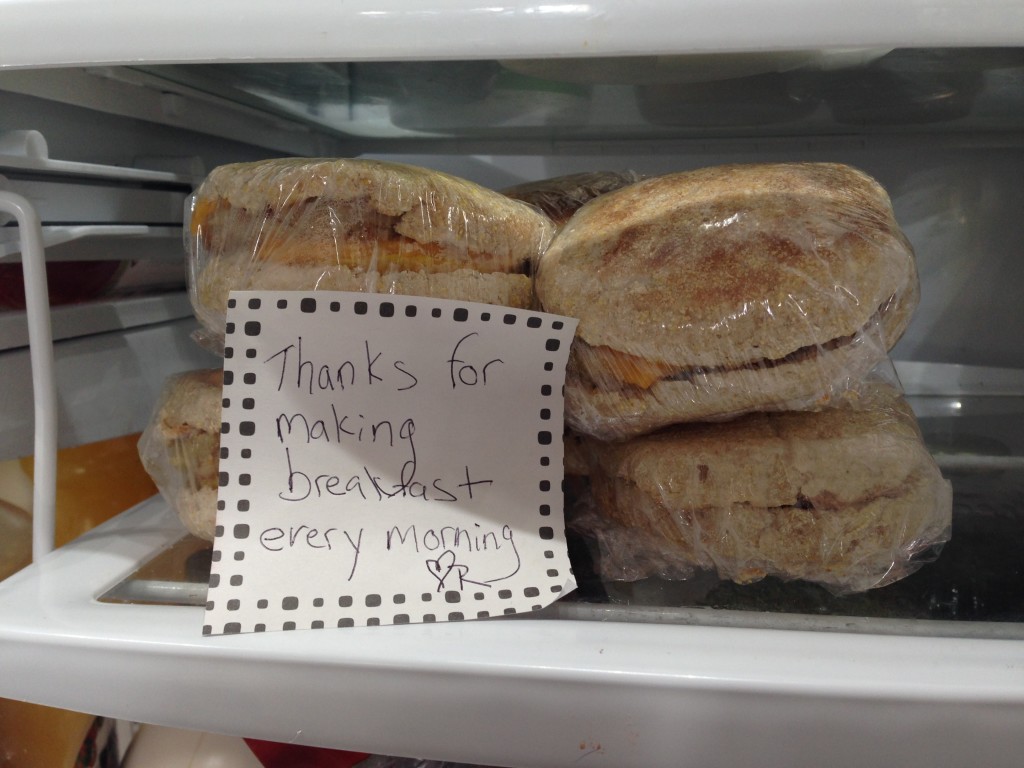 Thanks for
making
breakfast
every morning
♡R